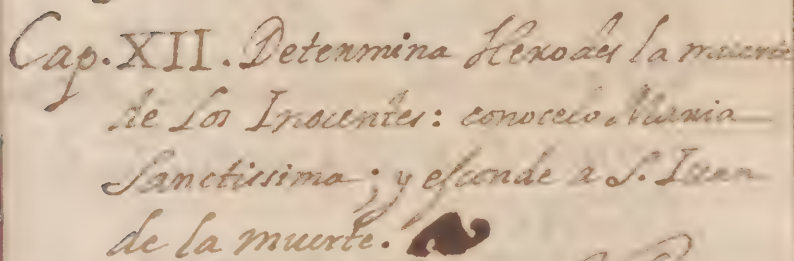 Cap. XII. Determina Herodes la muerte
de los Inocentes: conocelo Maria
Sanctissima; y esconde a S. Iuan
de la muerte.